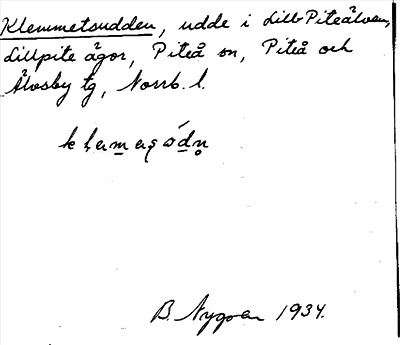 Klemmetsudden, udde i Lill-Piteälven,
Lillpite ägor, Piteå sn, Piteå och
Älvsby tg, Norrb. l.
B. Nygren 1934.